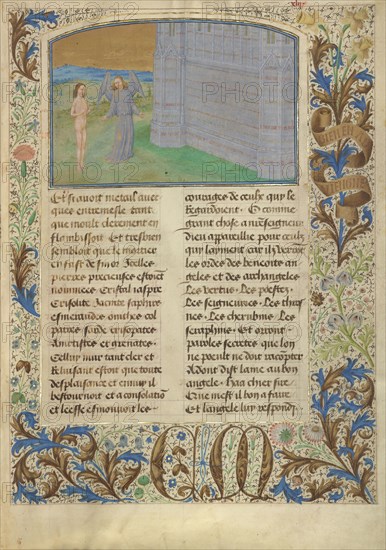 xliii
Et si avoit metail avec
ques entremesle tant
que moult clerement en
flamboioit Et tresbien
sembloit que la matiere
en fust de fin or Icelles
pierres precieuses estoient
nommees Cristal iaspre
Crisolite Jacinte saphire
esmeraude
Ametistre et grenates
Celluy mur tant cler et
Reluisant estoit que toute
desplaisance et ennuy il
bestournoit et a consolation
et leesse esmouvoit les
courages de ceulx qui le
Regardoient Et comme
grant chose a nostre seigneur
dieu appareillie pour ceulx
qui layment car il y verroit
les ordes des benoits an
geles et des archangeles
Les vertus Les poestez
Les seigneuries Les thro
nes Les cherubins Les
seraphins Et orront
paroles secretes que lon
ne peeult ne doit racompter
Adont dist lame au bon
angele Haa chier sire
Que mest il bon a faire
Et langele luy respondi